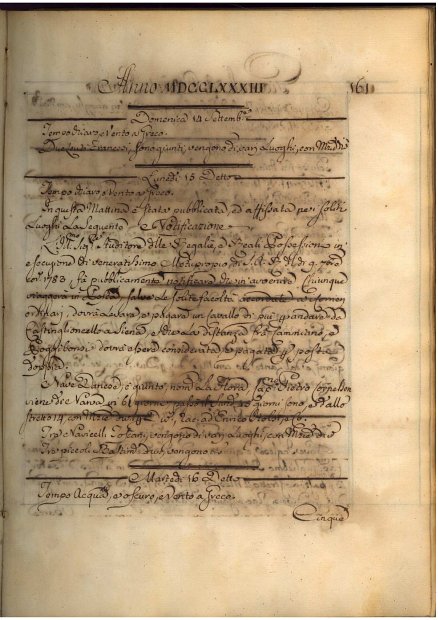 Anno MDCCLXXXIII 161
Domenica 14 Settemb.
Tempo chiaro, e Vento a Greco.
Due Leuti Francesi, sono giunti, vengono di varj Luoghi, con
Lunedì 15 Detto
Tempo chiaro, e Vento a Greco.
In questa Mattina è stata pubblicata, ed affissata per i soliti
Luoghi La Seguente Notificazione
Auditore delle Regalie, e Reali Possessioni in
esecuzione di veneratissimo Motuproprio di S.A.R. de' 9
1783, fà pubblicamente notificare che in avvenire Chiunque
viaggerà in Posta, salve le solite facoltà accordate ai Comon
dovrà Levare e pagare un Cavallo di più andando da
Castiglioncello a Siena, e che la distanza fra Cammiano, e
Poggibonsi dovrà essere considerata, e pagata per posta e
doppia.
Nave Danese, è giunto, nom. La Flora, Cap. Pietro Cornelsen
viene di e Varva in 61 giorni, passò il Sund, 40 giorni sono, e dallo
stretto 14, con
Tre Navicelli Toscani, vengono di varj Luoghi, con
Tre piccoli Bastimenti, vengono
Martedì 16 Detto
Tempo Acqua, e oscuro, e Vento a Greco.
Cinque